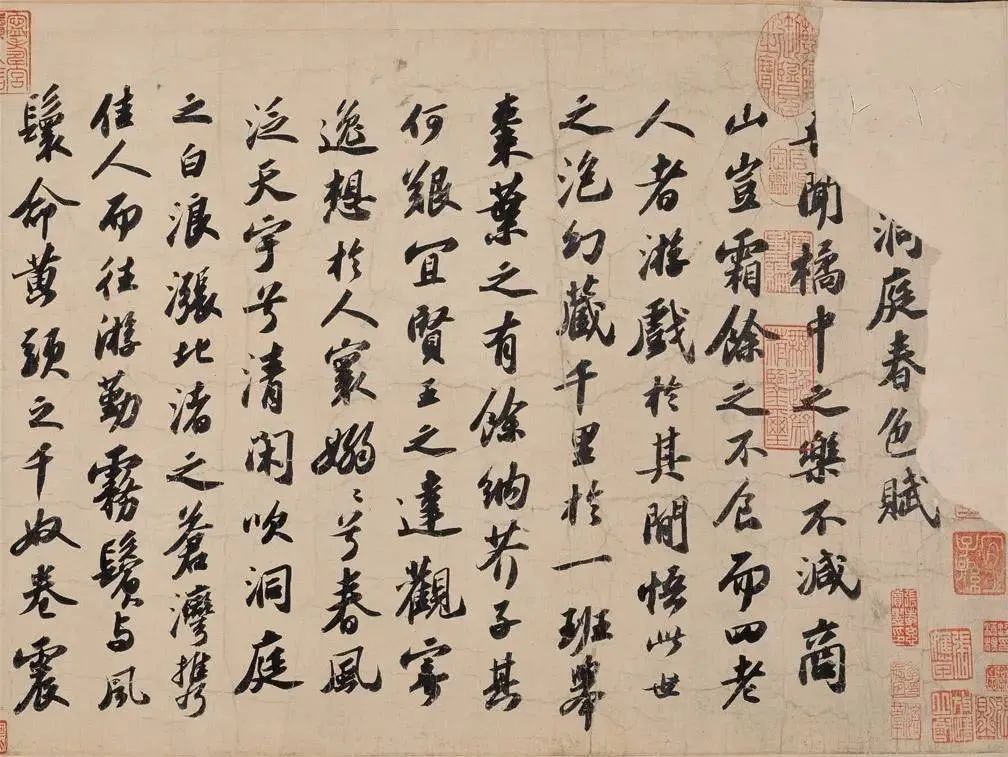 洞庭春色賦
聞橘中之樂不減商
山豈霜餘之不食而四老
人者游戲於其間悟此世
之泡幻藏千里於一班舉
棗葉之有餘納芥子其
何艱宜賢王之達觀寄
逸想於人寰嫋〻兮春風
泛天宇兮清閑吹洞庭
之白浪漲北渚之蒼灣携
佳人而往游勤霧鬢与風
鬟命黃頭之千奴卷震